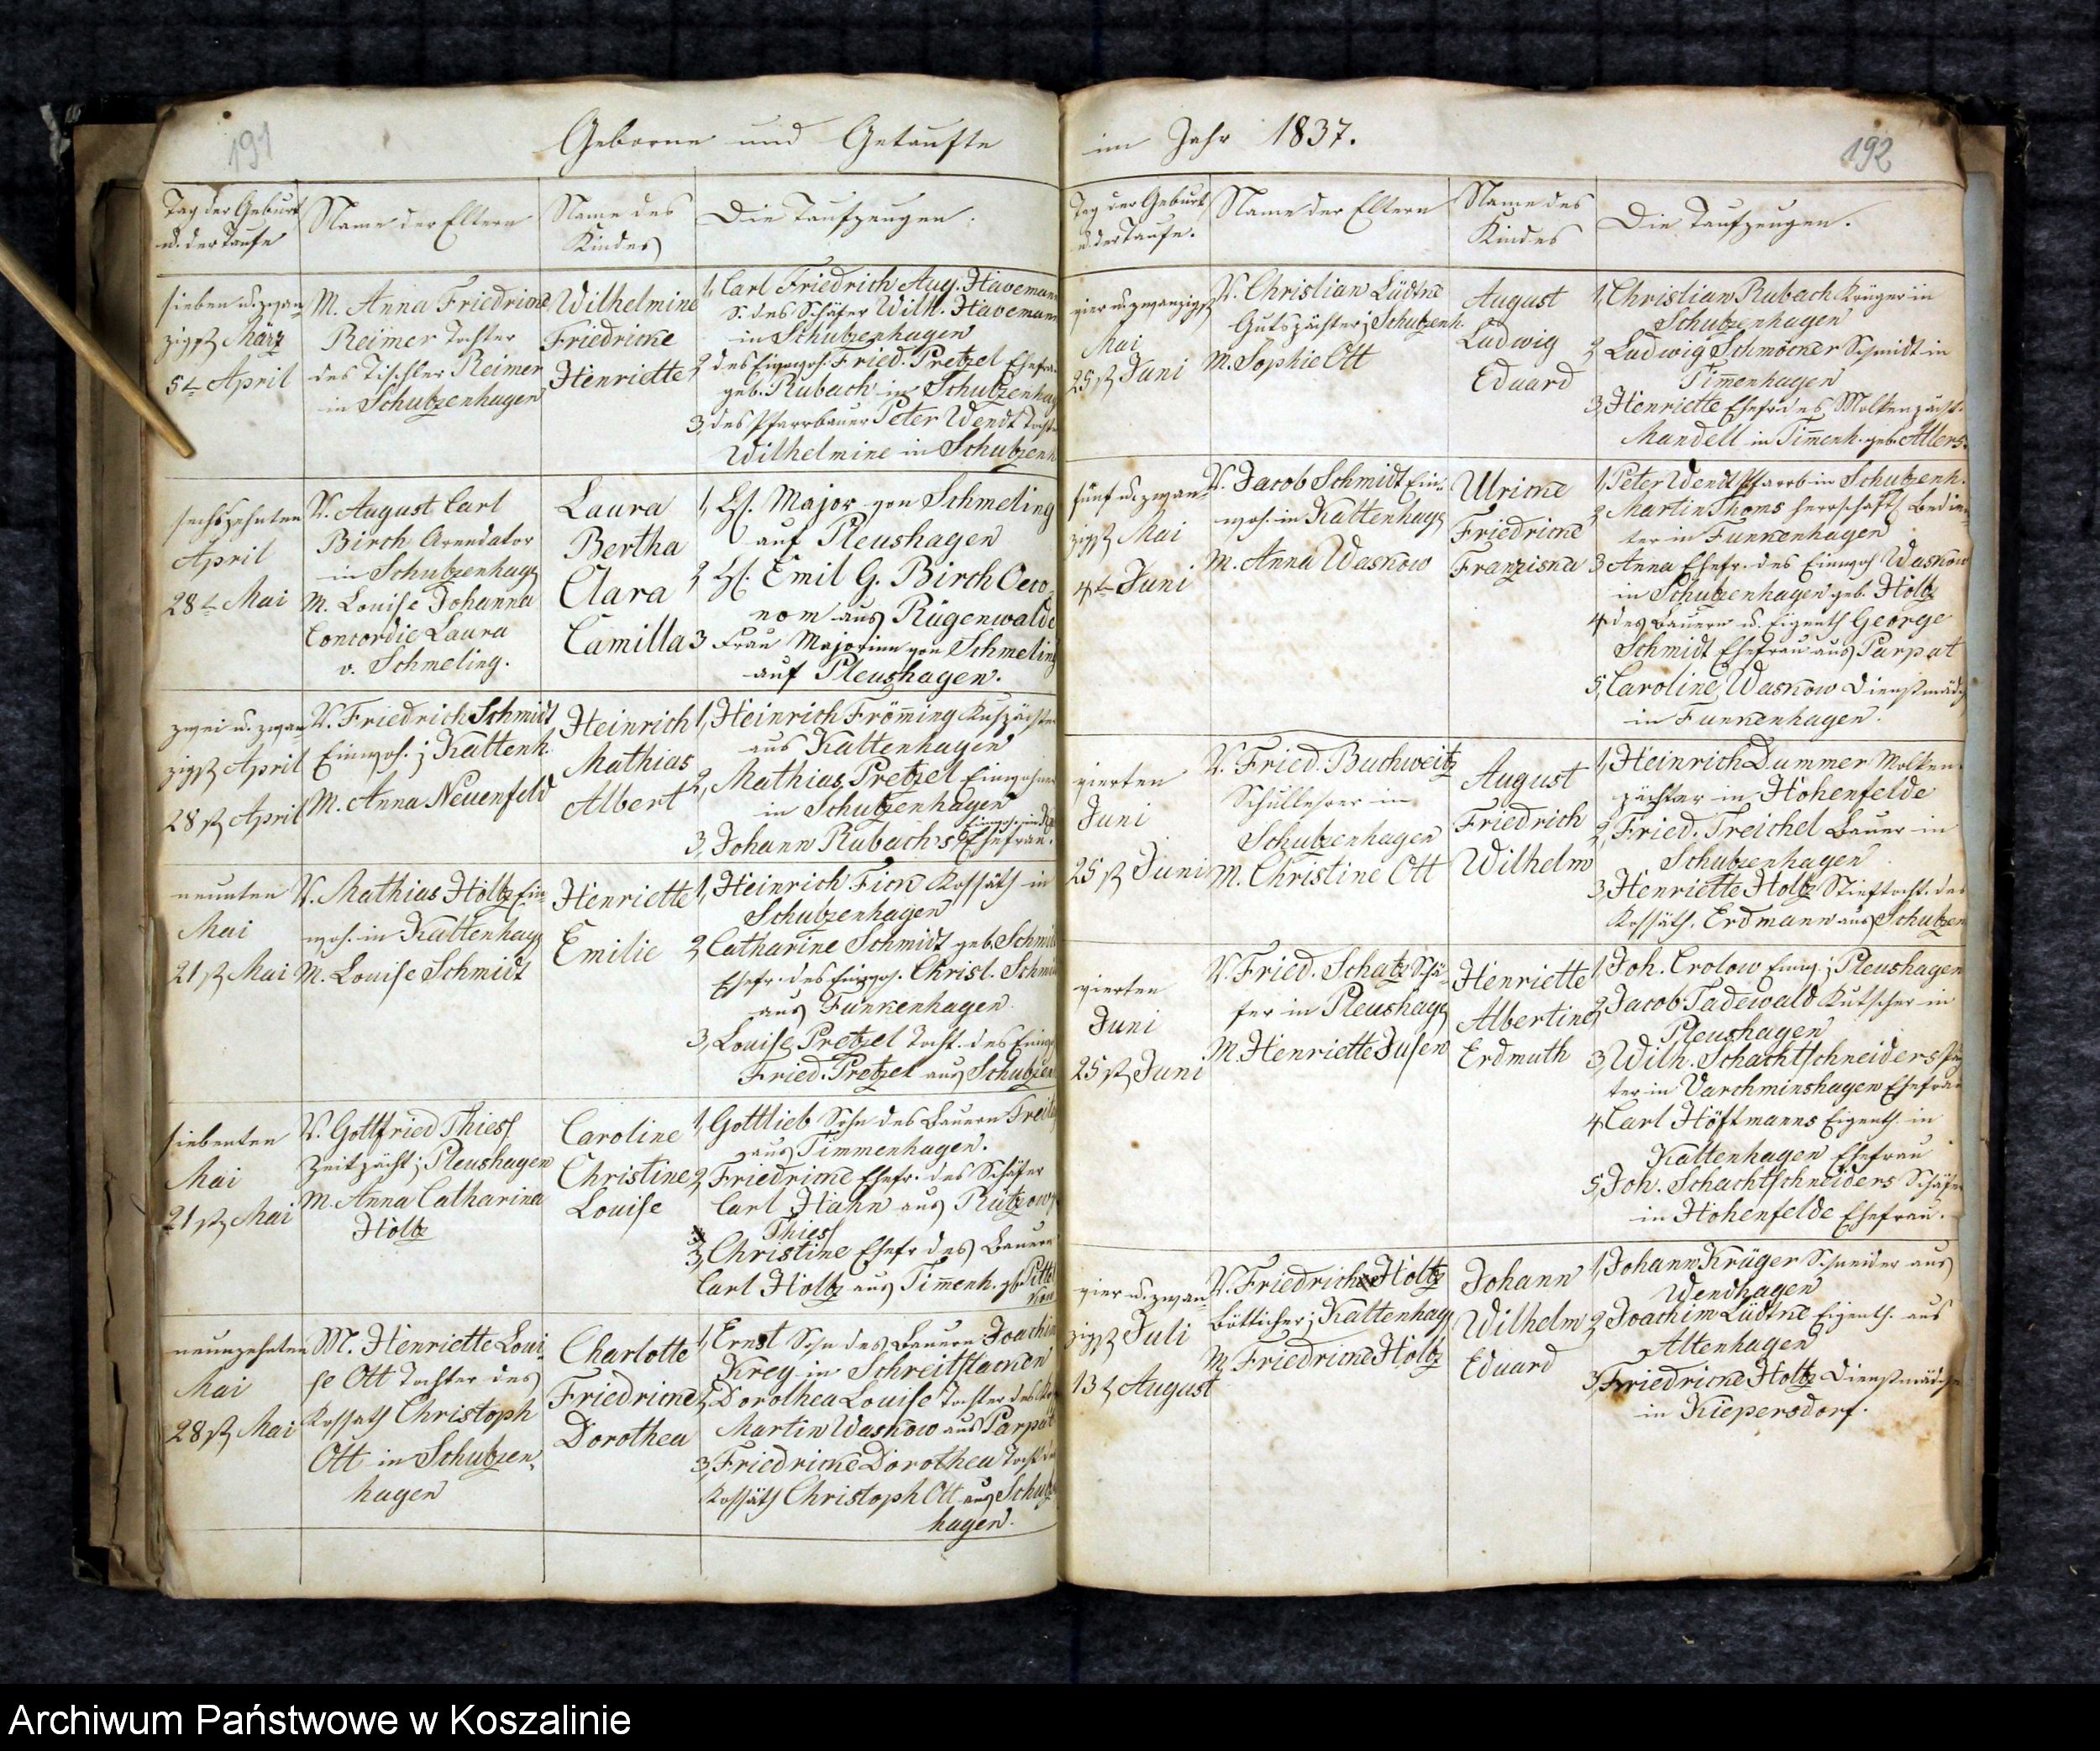 191
Geborne und Getaufte
Tag der Geburt
u. der Taufe
Name der Eltern
Name des
Kindes
Die Taufzeugen.
sieben u. zwan-
zigst März
5t April
M. Anna Friedricke
Reimer Tochter
des Tischler Reimer
in Schulzenhagen
Wilhelmine
Friedricke
Henriette
1, Carl Friedrich Aug. Havemann
S. des Schäfer Wilh. Havemann
in Schulzenhagen
2 des Einwoh. Fried. Pretzel Ehefr.
geb. Rubach in Schulzenhag
3, des Pfarrbauer Peter Wendt Tochter
Wilhelmine in Schulzenh
sechszehnten
April
28t Mai
V. August Carl
Birch Arendator
in Schulzenhag
M. Louise Johanna
Concordie Laura
v. Schmeling.
Laura
Bertha
Clara
Camilla
1, H. Major von Schmeling
auf Pleushagen
2 H. Emil G. Birch Oeco-
nom aus Rügenwalde
3 Frau Majorinn von Schmeling
auf Pleushagen.
zwei u. zwan-
zigst April
28st April
V. Friedrich Schmidt
Einwoh. i Kattenh.
M. Anna Neuenfeld
Heinrich
Mathias
Albert
1, Heinrich Frömming Kuhpächter
aus Kattenhagen
2, Mathias Pretzel Einwohner
in Schulzenhagen
3, Johann Rubach's Ehefrau.
neunten
Mai
21st Mai
V. Mathias Holtz Ein-
woh. in Kattenhag
M. Louise Schmidt
Henriette
Emilie
1, Heinrich Fick Kossäth in
Schulzenhagen
2 Catharine Schmidt geb. Schmidt
Ehefr. des Einwoh. Christ. Schmidt
aus Funkenhagen
3, Louise Pretzel Tocht. des Einw
Fried. Pretzel aus Schulzen
siebenten
Mai
21st Mai
V. Gottfried Thiess
Zeitpächt. i Pleushagen
M. Anna Catharina
Holtz
Caroline
Christine
Louise
1, Gottlieb Sohn des Bauern
aus Timmenhagen.
2, Friedricke Ehefr. des Schäfer
Carl Hahn aus Rützow
Thiess
3, Christine Ehefr des Bauern
Carl Holtz aus Timenh.
neunzehnten
Mai
28st Mai
M. Henriette Loui-
se Ott Tochter des
Kossath Christoph
Ott in Schulzen-
hagen
Charlotte
Friedricke
Dorothea
1, Ernst Sohn des Bauern Joachim
Krey in Schreitstacken
2, Dorothea Louise Tochter des
Martin Waskow aus Parpat
3, Friedricke Dorothea Tocht. des
Kossäth Christoph Ott aus Schulz
hagen.
im Jahr 1837.
192
Tag der Geburt
u. der Taufe.
Name der Eltern
Name des
Kindes
Die Taufzeugen.
vier u. zwanzigst
Mai
25st Juni
V. Christian Lüdtke
Gutspächter i Schulzenh.
M. Sophie Ott
August
Ludwig
Eduard
1, Christian Rubach Krüger in
Schulzenhagen
2, Ludwig Schmöcker Schmidt in
Timenhagen
3, Henriette Ehefr. des Molkenpächt.
Mandell in Timenh. geb. Allers.
fünf u. zwan-
zigst Mai
4t Juni
V. Jacob Schmidt Ein-
woh. in Kattenhag
M. Anna Waskow
Ulricke
Friedricke
Franziska
1, Peter Wendt Pfarrb. in Schulzenh.
2 Martin Thoms herrschaftl. Bedien-
ter in Funkenhagen
3 Anna Ehefr. des Einwoh Waskow
in Schulzenhagen geb. Holtz
4 des Bauern u. Eigenth George
Schmidt Ehefrau aus Parpat
5, Caroline Waskow Dienstmädch
in Funkenhagen.
vierten
Juni
25st Juni
V. Fried. Buchweitz
Schullehrer in
Schulzenhagen
M. Christine Ott
August
Friedrich
Wilhelm
1, Heinrich Dummer Molken-
pächter in Hohenfelde
2, Fried. Treichel Bauer in
Schulzenhagen
3, Henriette Holtz Stieftocht. des
Kossäth. Erdmann aus Schulzen
vierten
Juni
25st Juni
V. Fried. Schatz Schä-
fer in Pleushag
M. Henriette Jusen
Henriette
Albertine
Erdmuth
1, Joh. Crolow Einw. i Pleushagen
2, Jacob Tadewald Kutscher in
Pleushagen
3, Wilh. Schachtschneiders
ter in Varchminshagen Ehefrau
4 Carl Höftmanns Eigenth. in
Kattenhagen Ehefrau
5, Joh. Schachtschneiders Schäfer
in Hohenfelde Ehefrau.
vier u. zwan-
zigst Juli
13t August
V. Friedrich Holtz
Böttcher i Kattenhag
M. Friedricke Holtz
Johann
Wilhelm
Eduard
1, Johann Krüger Schneider aus
Wendhagen
2, Joachim Lüdtke Eigenth. aus
Altenhagen
3, Friedricke Holtz Dienstmädch
in Kiepersdorf.
Archiwum Państwowe w Koszalinie